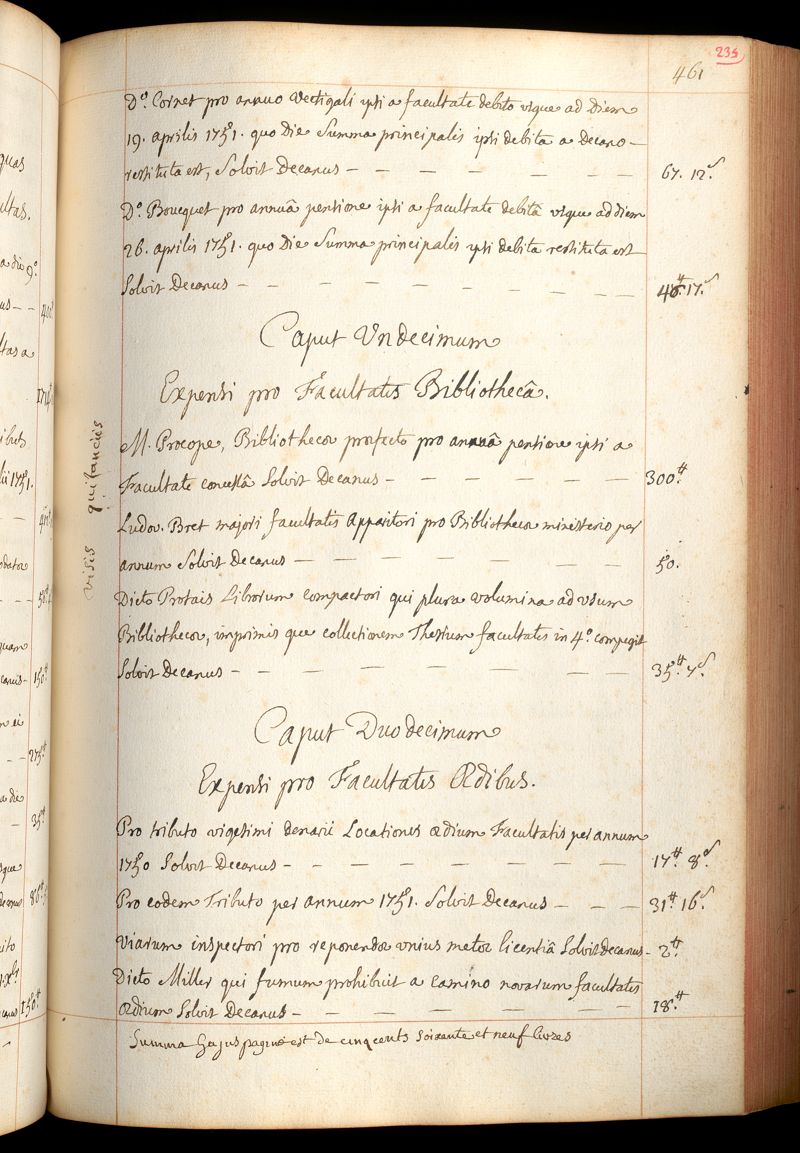 235
461
D.º Cornet pro annuo Vectigali ipsi a facultate debito vsque ad Diem
19. aprilis 1751. quo Die Summa principalis ipsi debita a Decano —
restituta est, Solvit Decanus — — — — — — — 67. 12.s
D.º Boucquet pro annuâ pensione ipsi a facultate debitâ vsque ad diem
26. aprilis 1751. quo Die Summa principalis ipsi debita restituta est
Solvit Decanus — — — — — — — — 46.tt 17.s
Caput Undecimum
Expensi pro Facultatis Bibliothecâ.
visis quitanciis
M. Procope, Bibliothecæ præfecto pro annuâ pensione ipsi a
Facultate concessâ Solvit Decanus — — — — — — 300.tt
Ludov. Bret majori facultatis Apparitori pro Bibliothecæ ministerio per
annum Solvit Decanus — — — — — — — 50.
Dicto Protais Librorum compactori qui plura volumina ad vsum
Bibliothecæ, imprimis que collectionem Thesium facultatis in 4.º compegit
Solvit Decanus — — — — — — — 35.tt 7.s
Caput Duodecimum
Expensi pro Facultatis Ædibus.
Pro tributo vigesimi denarii Locationis ædium Facultatis per annum
1750 Solvit Decanus — — — — — — — — 17.tt 8.s
Pro eodem Tributo per annum 1751. Solvit Decanus — — — 31.tt 16.s
Viarum inspectori pro reponendæ vnius metæ licentiâ Solvit decanus — 2.tt
Dicto Miller qui fumum prohibuit a camino novarum facultatis
ædium Solvit Decanus — — — — — — — — 18.tt
Summa hujus paginæ est de cinq cents soixante et neuf livres